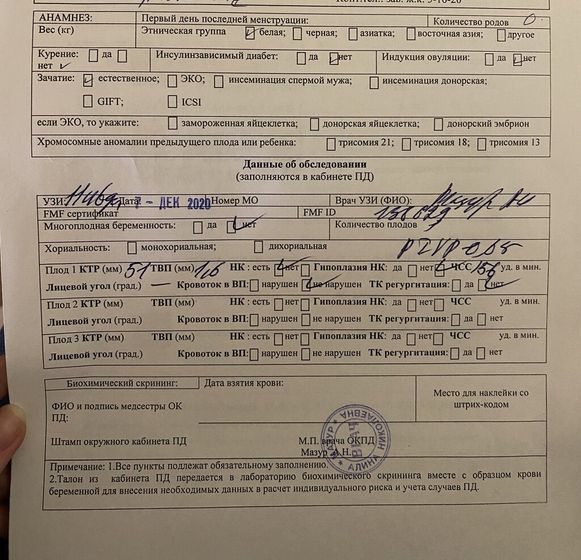 АНАМНЕЗ: Первый день последней менструации: Количество родов 0
Вес (кг) Этническая группа белая; черная; азиатка; восточная азия; другое
Курение: да Инсулинзависимый диабет: да нет Индукция овуляции: да нет
нет
Зачатие: естественное; ЭКО; инсеминация спермой мужа; инсеминация донорская;
GIFT; ICSI
если ЭКО, то укажите: замороженная яйцеклетка; донорская яйцеклетка; донорский эмбрион
Хромосомные аномалии предыдущего плода или ребенка: трисомия 21; трисомия 18; трисомия 13
Данные об обследовании
(заполняются в кабинете ПД)
УЗИ: Дата 7 - ДЕК 2020 Номер МО Врач УЗИ (ФИО):
FMF сертификат FMF ID
Многоплодная беременность: да нет Количество плодов
Хориальность: монохориальные; дихориальная
Плод 1 КТР (мм) 51 ТВП (мм) 1,6 НК : есть нет Гипоплазия НК: да нет ЧСС уд. в мин.
Лицевой угол (град.) — Кровоток в ВП: нарушен не нарушен ТК регургитация: да нет
Плод 2 КТР (мм) ТВП (мм) НК: есть нет Гипоплазия НК: да нет ЧСС уд. в мин.
Лицевой угол (град.) Кровоток в ВП: нарушен не нарушен ТК регургитация: да нет
Плод 3 КТР (мм) ТВП (мм) НК: есть нет Гипоплазия НК: да нет ЧСС уд. в мин.
Лицевой угол (град.) Кровоток в ВП: нарушен не нарушен ТК регургитация: да нет
Биохимический скрининг: Дата взятия крови:
Место для наклейки со
штрих-кодом
ФИО и подпись медсестры ОК
ПД:
Штамп окружного кабинета ПД М.П. врача ОКПД
Мазур А.Н.
МАЗУР АЛИНА НИКОЛАЕВНА
Примечание: 1.Все пункты подлежат обязательному заполнению.
2.Талон из кабинета ПД передается в лабораторию биохимического скрининга вместе с образцом крови
беременной для внесения необходимых данных в расчет индивидуального риска и учета случаев ПД.